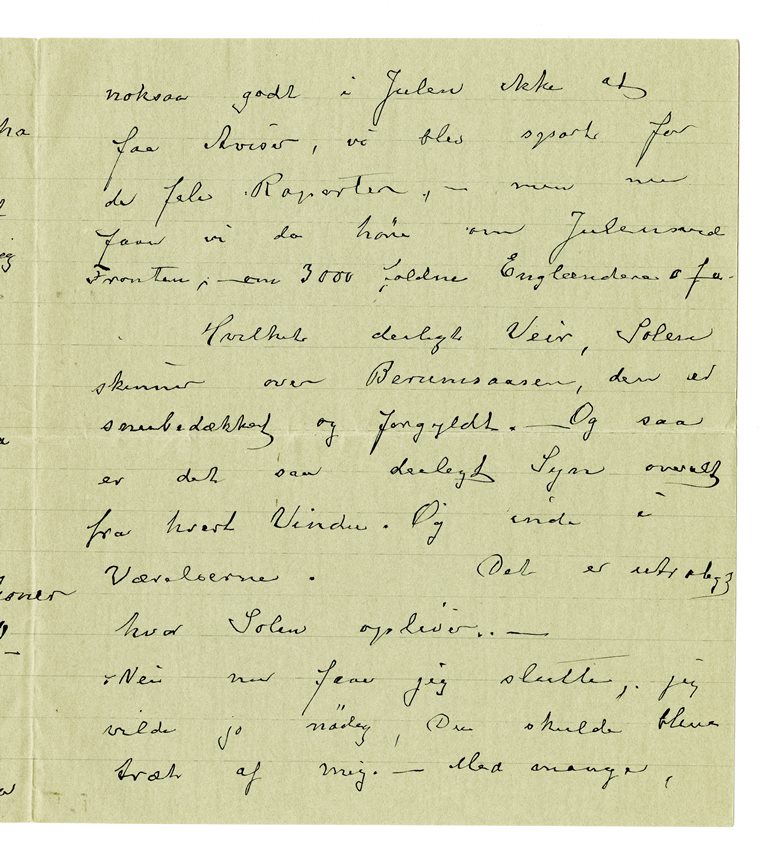 noksaa godt i Julen ikke at
faa Aviser, vi blev spart for
de fele Raporter, – men nu
faar vi da høre om Julen ved
Fronten, – om 3000 faldne Englændere o fa.
Hvilket deiligt Veir, Solen
skinner over Berumsaasen, den er
snebedækket og forgyldt. – Og saa
er det saa deiligt Syn overalt
fra hvert Vindu. Og inde i
Værelserne. Det er utrolig
hvor Solen opliver. –
Nei nu faar jeg slutte, jeg
vilde jo nødig, Du skulde blive
træt af mig. – Med mange,
ha
eg
ioner